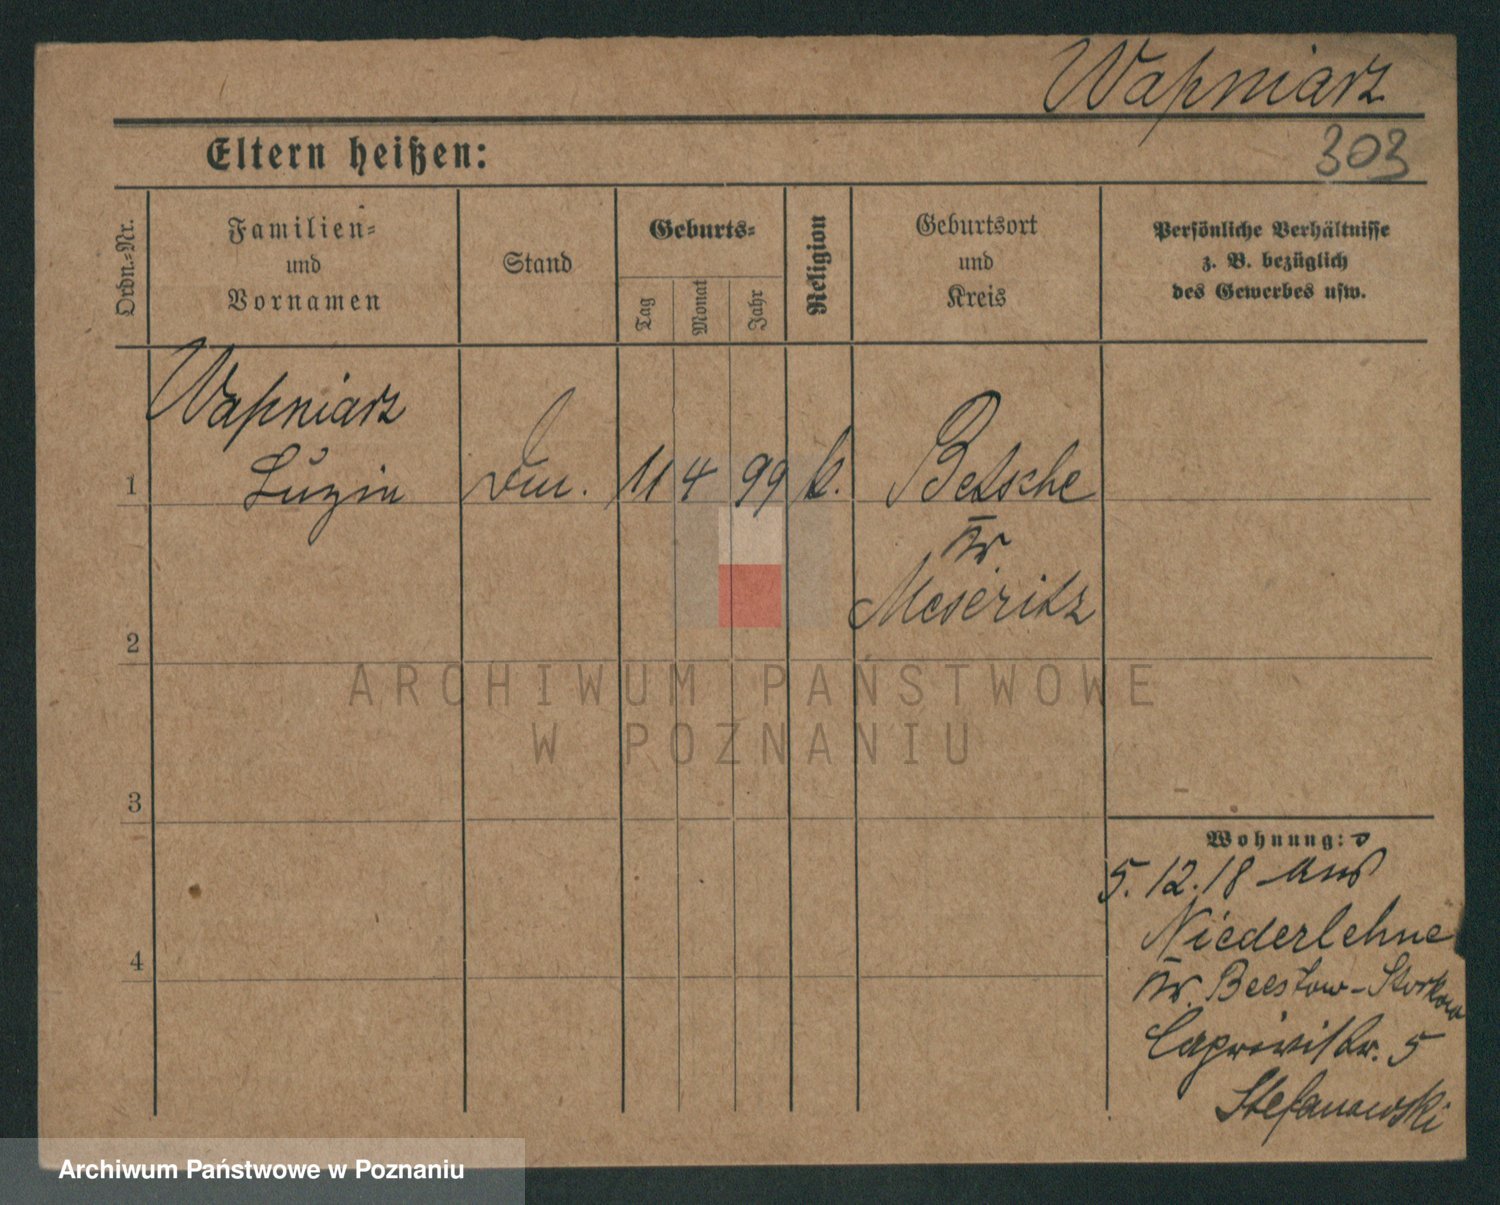 Wapniarz
303
Eltern heißen:
Ordn.-Nr.
Familien-
und
Vornamen
Stand
Geburts-
Tag
Monat
Jahr
Religion
Geburtsort
und
Kreis
Persönliche Verhältnisse
z. B. bezüglich
des Gewerbes usw.
Wapniarz
1 Luzin 11 4 99 k. Betsche
Kr
Meseritz
2
3
4
Wohnung:
5.12.18 aus
Niederlehne
Kr. Beestow-Storkow
Caprivistr. 5
Stefanowski
ARCHIWUM PAŃSTWOWE
W POZNANIU
Archiwum Państwowe w Poznaniu